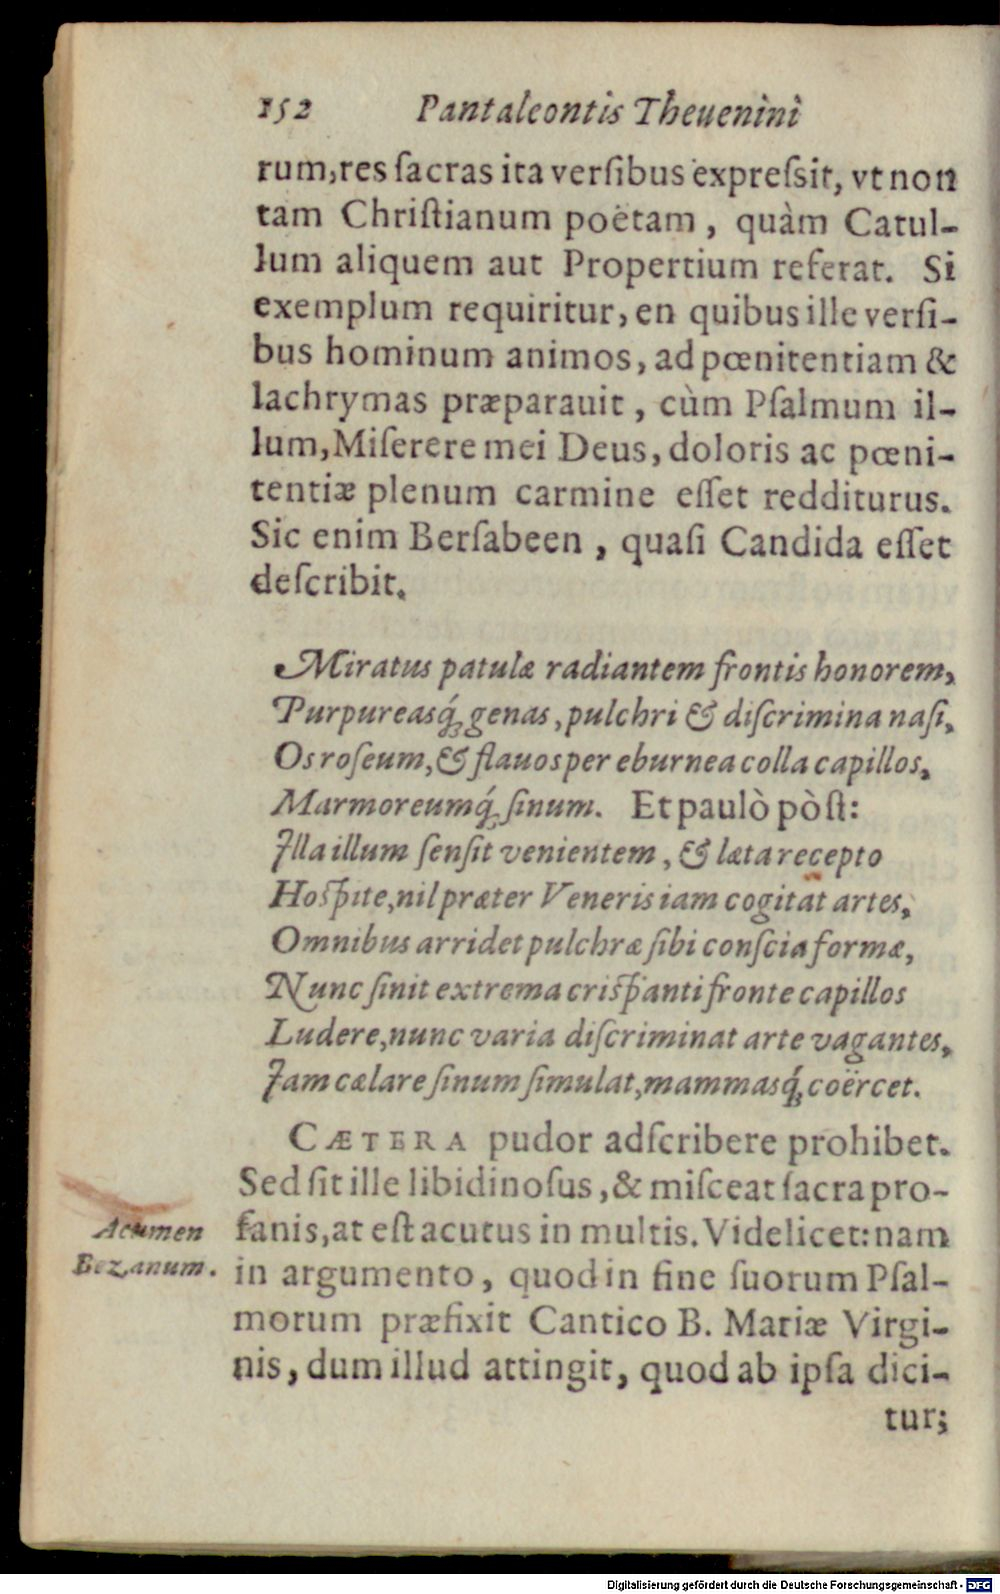 152 Pantaleontis Theuenini
rum, res ſacras ita verſibus expreſsit, vt non
tam Chriſtianum poëtam, quàm Catul-
lum aliquem aut Propertium referat. Si
exemplum requiritur, en quibus ille verſi-
bus hominum animos, ad pœnitentiam &
lachrymas præparauit, cùm Pſalmum il-
lum, Miſerere mei Deus, doloris ac pœni-
tentiæ plenum carmine eſſet redditurus.
Sic enim Berſabeen, quaſi Candida eſſet
deſcribit.
Miratus patulæ radiantem frontis honorem,
Purpureasq́; genas, pulchri & diſcrimina naſi,
Os roſeum, & flauos per eburnea colla capillos,
Marmoreumq́; ſinum. Et paulò pòſt:
Illa illum ſenſit venientem, & læta recepto
Hoſpite, nil præter Veneris iam cogitat artes,
Omnibus arridet pulchræ ſibi conſcia formæ,
Nunc ſinit extrema criſpanti fronte capillos
Ludere, nunc varia diſcriminat arte vagantes,
Iam cælare ſinum ſimulat, mammasq́; coërcet.
CÆTERA pudor adſcribere prohibet.
Sed ſit ille libidinoſus, & miſceat ſacra pro-
fanis, at eſt acutus in multis. Videlicet: nam
Acumen
Bezanum.
in argumento, quod in fine ſuorum Pſal-
morum præfixit Cantico B. Mariæ Virgi-
nis, dum illud attingit, quod ab ipſa dici-
tur;
Digitalisierung gefördert durch die Deutsche Forschungsgemeinschaft - DFG